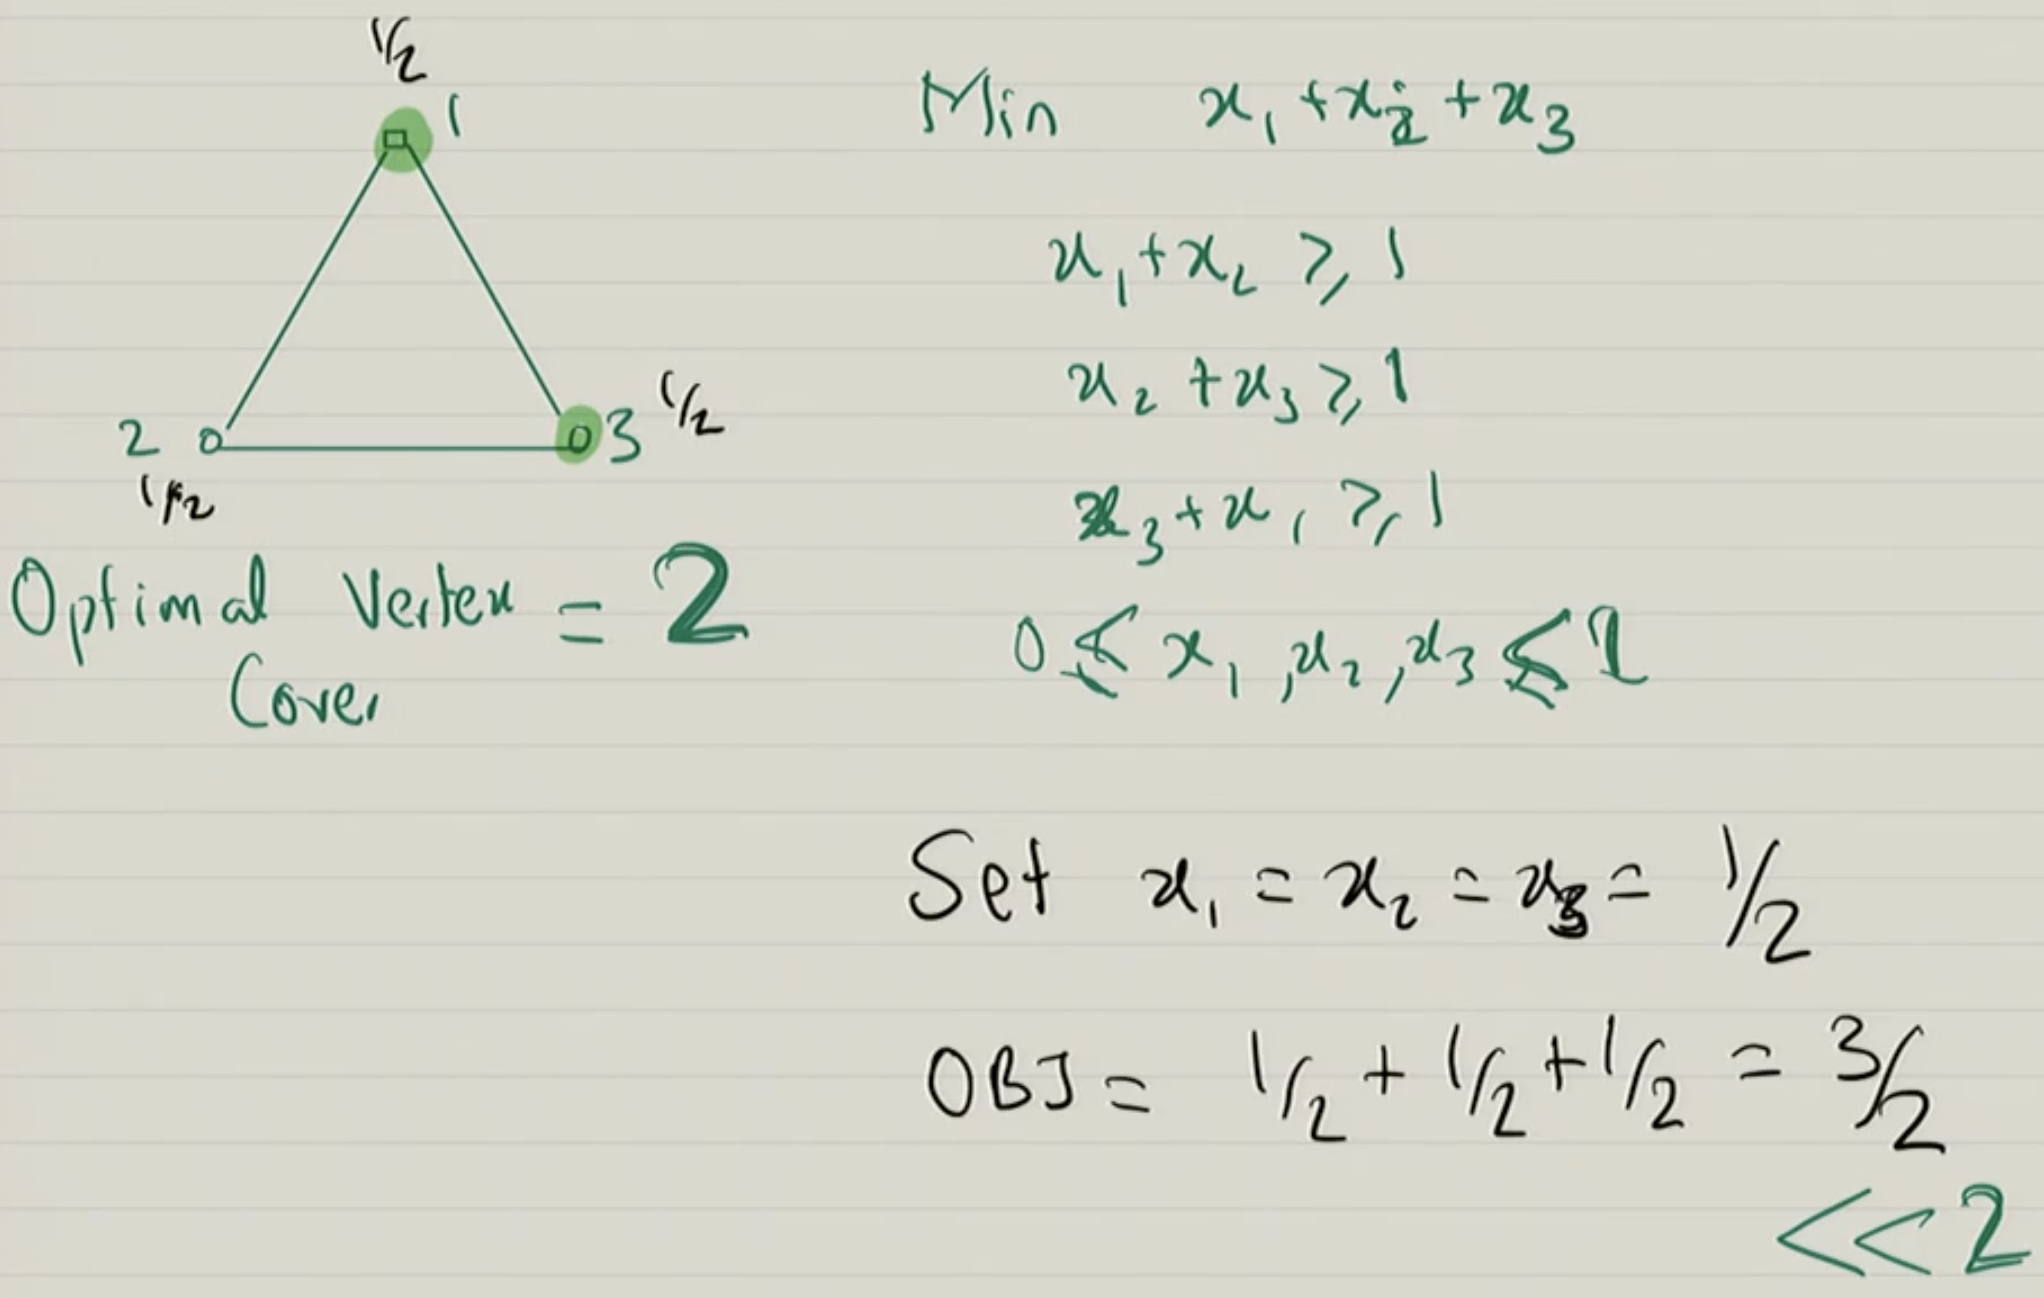 1/2
1
2
1/2
3
1/2
Optimal Vertex = 2
Cover
Min x₁ + x₂ + x₃
x₁ + x₂ ≥ 1
x₂ + x₃ ≥ 1
x₃ + x₁ ≥ 1
0 ≤ x₁, x₂, x₃ ≤ 1
Set x₁ = x₂ = x₃ = 1/2
OBJ = 1/2 + 1/2 + 1/2 = 3/2
<< 2